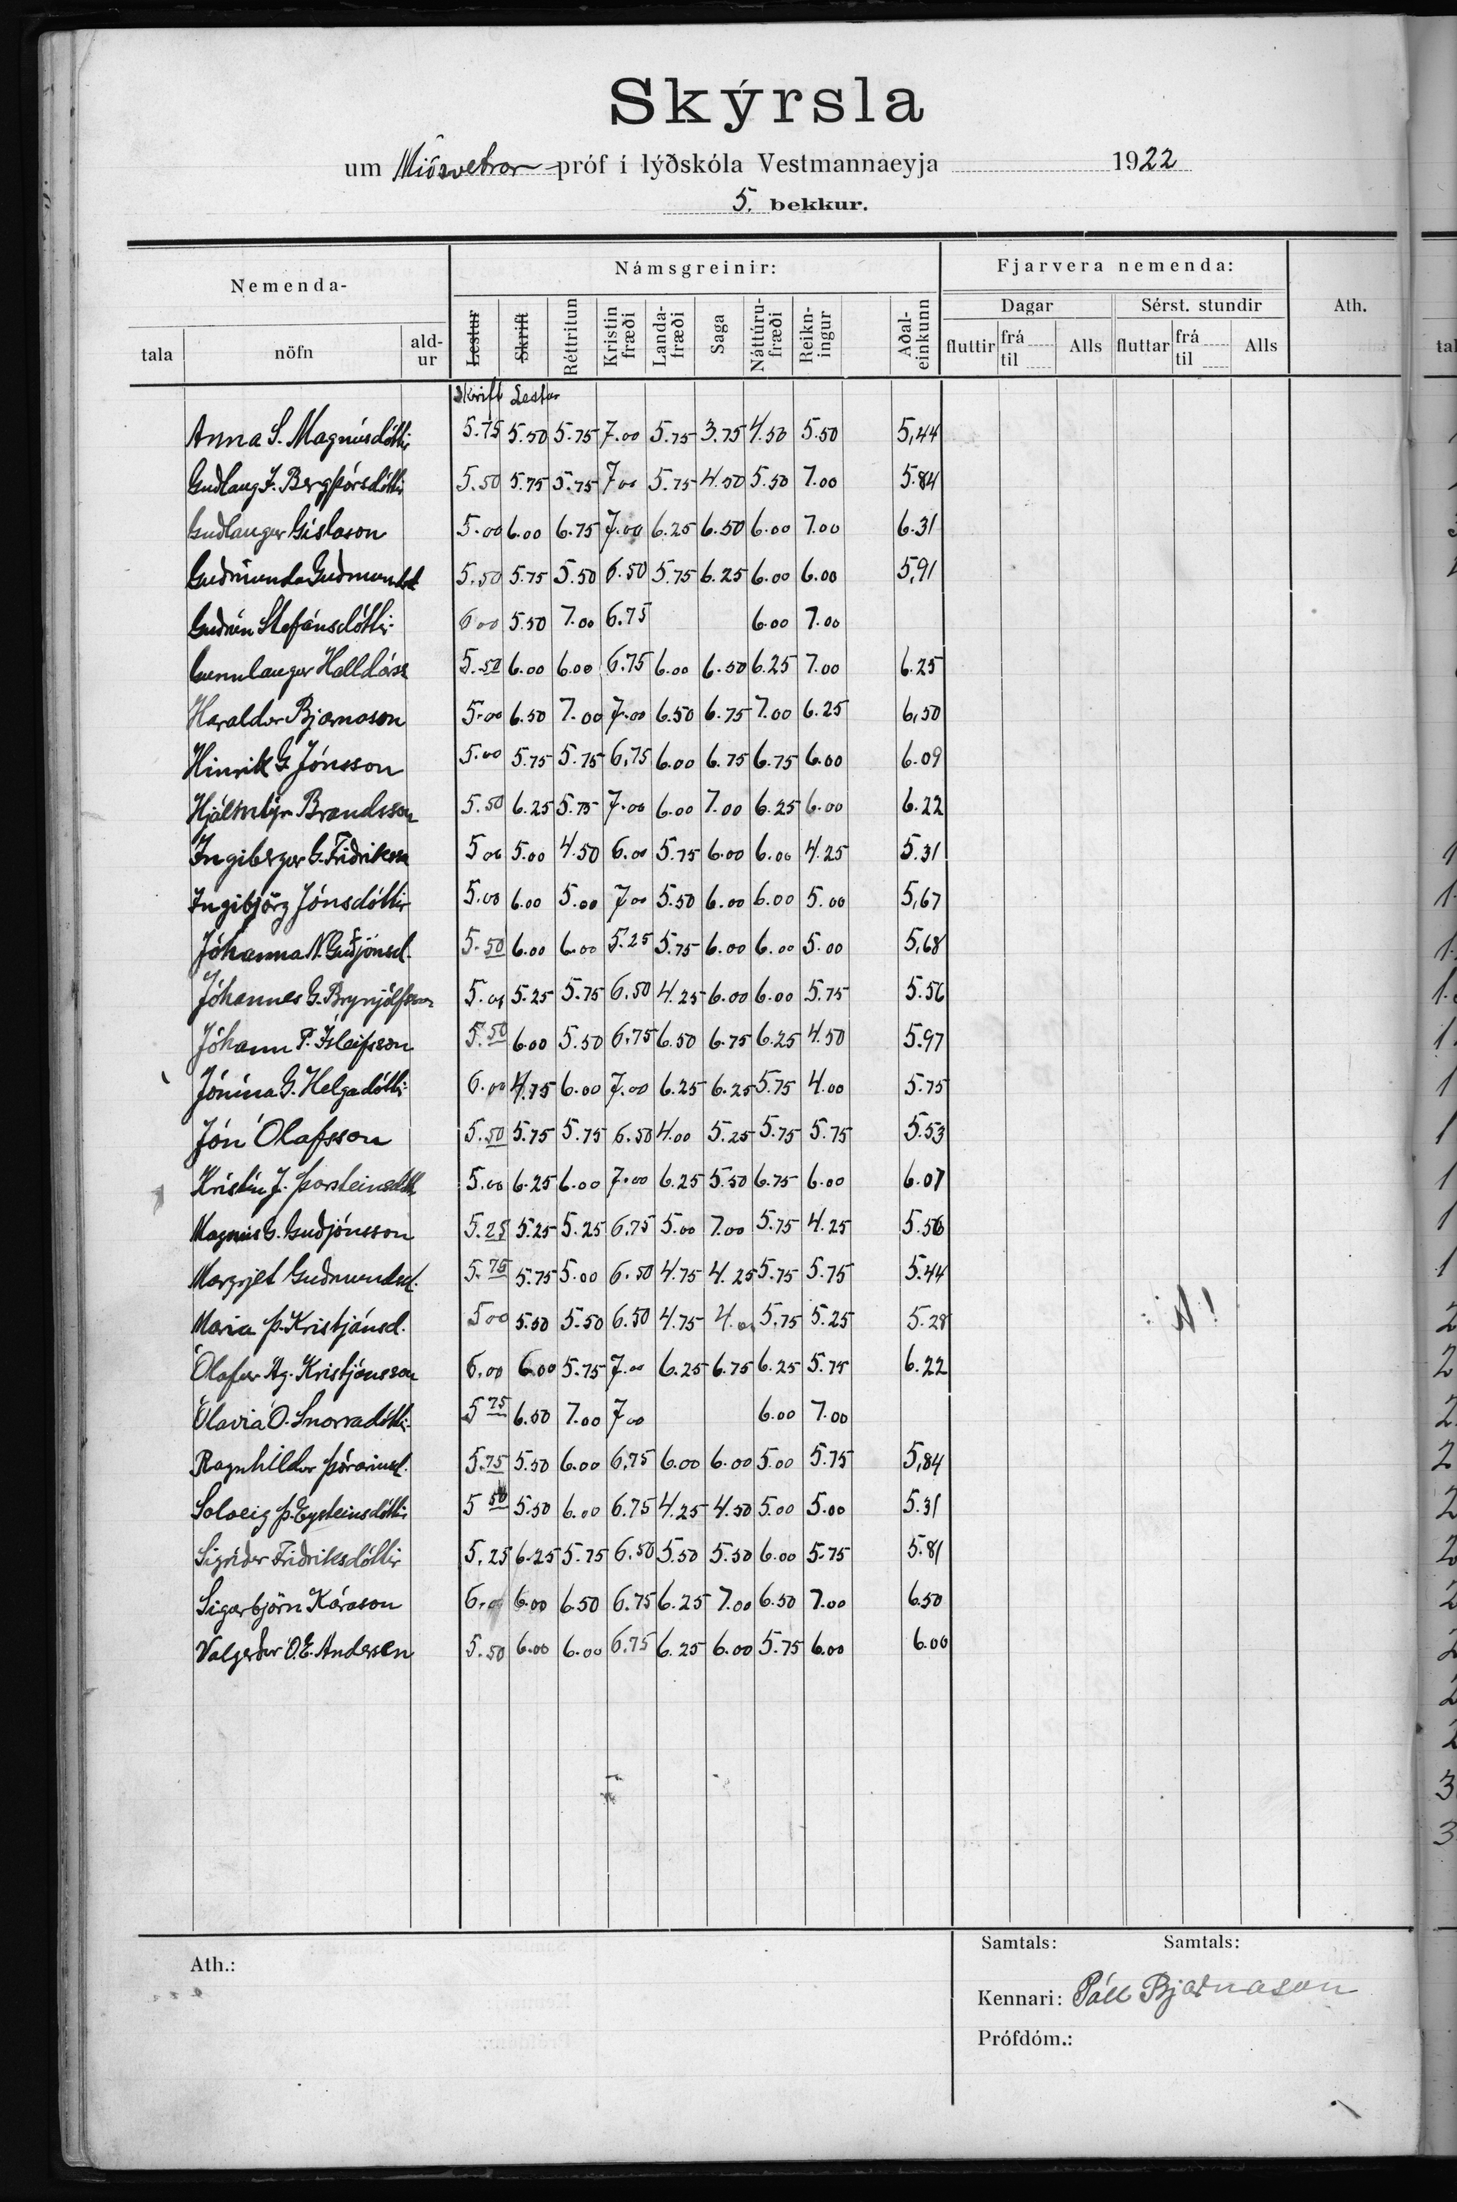 Skýrsla
um Miðsvetrar-próf í lýðskóla Vestmannaeyja 1922
5. bekkur.
Nemenda- Námsgreinir: Fjarvera nemenda: Ath.
Dagar Sérst. stundir
tala nöfn ald-ur Lestur Skrift Réttritun Kristin fræði Landa-fræði Saga Náttúru-fræði Reikn-ingur Aðal-einkunn fluttir frá til Alls fluttar frá til Alls
Skrift Lestur
Anna S. Magnúsdóttir 5.75 5.50 5.75 7.00 5.75 3.75 4.50 5.50 5,44
Guðlaug J. Bergþórsdóttir 5.50 5.75 5.75 7.00 5.75 4.50 5.50 7.00 5.84
Guðlaugur Gíslason 5.00 6.00 6.75 7.00 6.25 6.50 6.00 7.00 6.31
Guðmunda Guðmundsd 5.50 5.75 5.50 6.50 5.75 6.25 6.00 6.00 5,91
Guðrún Stefánsdóttir 6.00 5.50 7.00 6.75 6.00 7.00
Gunnlaugur Halldórss 5.50 6.00 6.00 6.75 6.00 6.50 6.25 7.00 6.25
Haraldur Bjarnason 5.00 6.50 7.00 7.00 6.50 6.75 7.00 6.25 6,50
Hinrik G. Jónsson 5.00 5.75 5.75 6.75 6.00 6.75 6.75 6.00 6.09
Hjálmtýr Brandsson 5.50 6.25 5.75 7.00 6.00 7.00 6.25 6.00 6.22
Ingibergur G. Friðrikss 5.00 5.00 4.50 6.00 5.75 6.00 6.00 4.25 5.31
Ingibjörg Jónsdóttir 5.00 6.00 5.00 7.00 5.50 6.00 6.00 5.00 5,67
Jóhanna N. Guðjónsd. 5.50 6.00 6.00 5.25 5.75 6.00 6.00 5.00 5,68
Jóhannes G. Brynjólfsson 5.00 5.25 5.75 6.50 4.25 6.00 6.00 5.75 5.56
Jóhann P. Ísleifsson 5.50 6.00 5.50 6.75 6.50 6.75 6.25 4.50 5.97
Jónína G. Helgadóttir 6.00 4.75 6.00 7.00 6.25 6.25 5.75 4.00 5.75
Jón Ólafsson 5.50 5.75 5.75 6.50 4.00 5.25 5.75 5.75 5.53
Kristín J. Þorsteinsdótt 5.00 6.25 6.00 7.00 6.25 5.50 6.75 6.00 6.07
Magnús G. Guðjónsson 5.25 5.25 5.25 6.75 5.00 7.00 5.75 4.25 5.56
Margrjet Guðmundsd. 5.75 5.75 5.00 6.50 4.75 4.25 5.75 5.75 5.44
María Þ. Kristjánsd. 5.00 5.50 5.50 6.50 4.75 4.00 5.75 5.25 5.28
Ólafur Ag. Kristjánsson 6.00 6.00 5.75 7.00 6.25 6.75 6.25 5.75 6.22
Ólavía Ó. Snorradóttir 5.75 6.50 7.00 7.00 6.00 7.00
Ragnhildur Þórarinsd. 5.75 5.50 6.00 6.75 6.00 6.00 5.00 5.75 5,84
Solveig Þ. Eysteinsdóttir 5.50 5.50 6.00 6.75 4.25 4.50 5.00 5.00 5.31
Sigríður Friðriksdóttir 5.25 6.25 5.75 6.50 5.50 5.50 6.00 5.75 5.81
Sigurbjörn Kárason 6.00 6.00 6.50 6.75 6.25 7.00 6.50 7.00 6.50
Valgerður Ó.E. Andersen 5.50 6.00 6.00 6.75 6.25 6.00 5.75 6.00 6.00
Ath.: Samtals: Samtals:
Kennari: Páll Bjarnason
Prófdóm.: